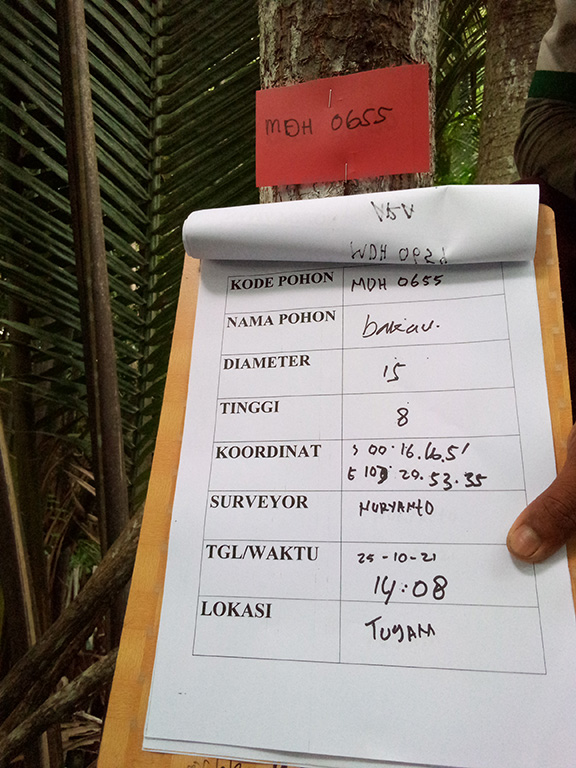 MDH 0655
KODE POHON MDH 0655
NAMA POHON bakau.
DIAMETER 15
TINGGI 8
KOORDINAT S 00.16.6.51
E 103 20.53.35
SURVEYOR NURYANTO
TGL/WAKTU 25-10-21
14:08
LOKASI TUGAM